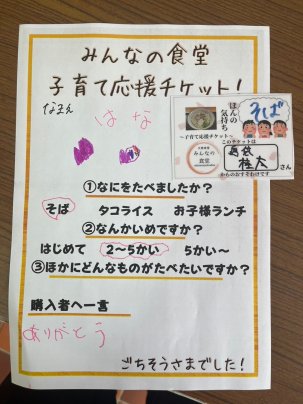 みんなの食堂
子育て応援チケット!
なまえ
はな
ほんの
気持ち
そば
~子育て応援チケット~
このチケットは
みんなの
食堂
桂大
さん
からのおすそわけです
①なにをたべましたか?
そば タコライス お子様ランチ
②なんかいめですか?
はじめて 2~5かい 5かい~
③ほかにどんなものがたべたいですか?
購入者へ一言
ありがとう
ごちそうさまでした!